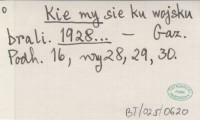 Kie my sie ku wojsku
brali. 1928... — Gaz.
Podh. 16, wy 28, 29, 30.
BT/025/0620